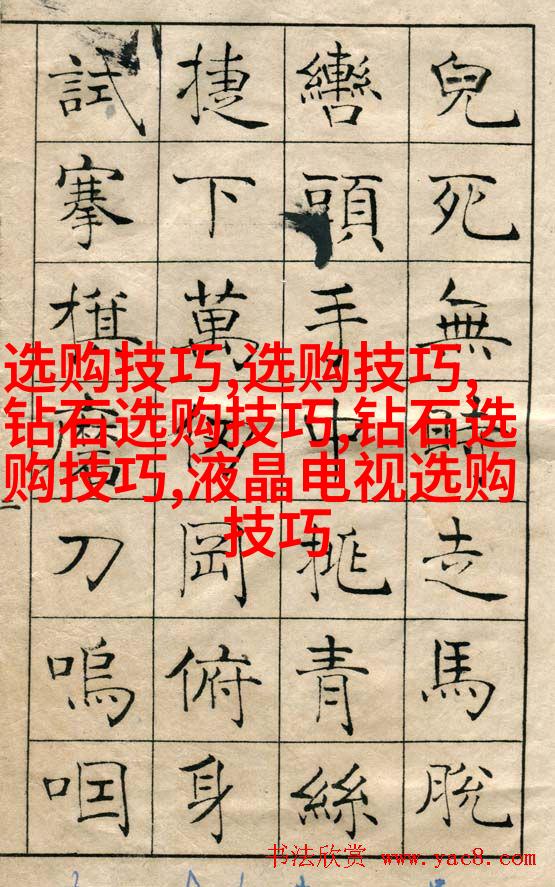 兒死無走馬脫
轡頭手中挑青絲
捷下萬岡俯身
試搴旗刀嗚咽
选购技巧,选购技巧,
钻石选购技巧,钻石选
购技巧,液晶电视选购
技巧
书法欣赏 www.yac8.com